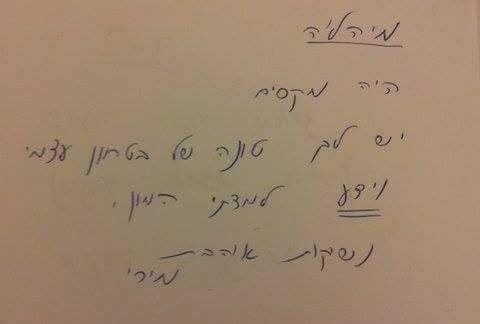 מיהל'ה
היה מקסים
יש לך טונה של בטחון עצמי
וידע למדתי המון.
נשיקות אוהבת
מירי